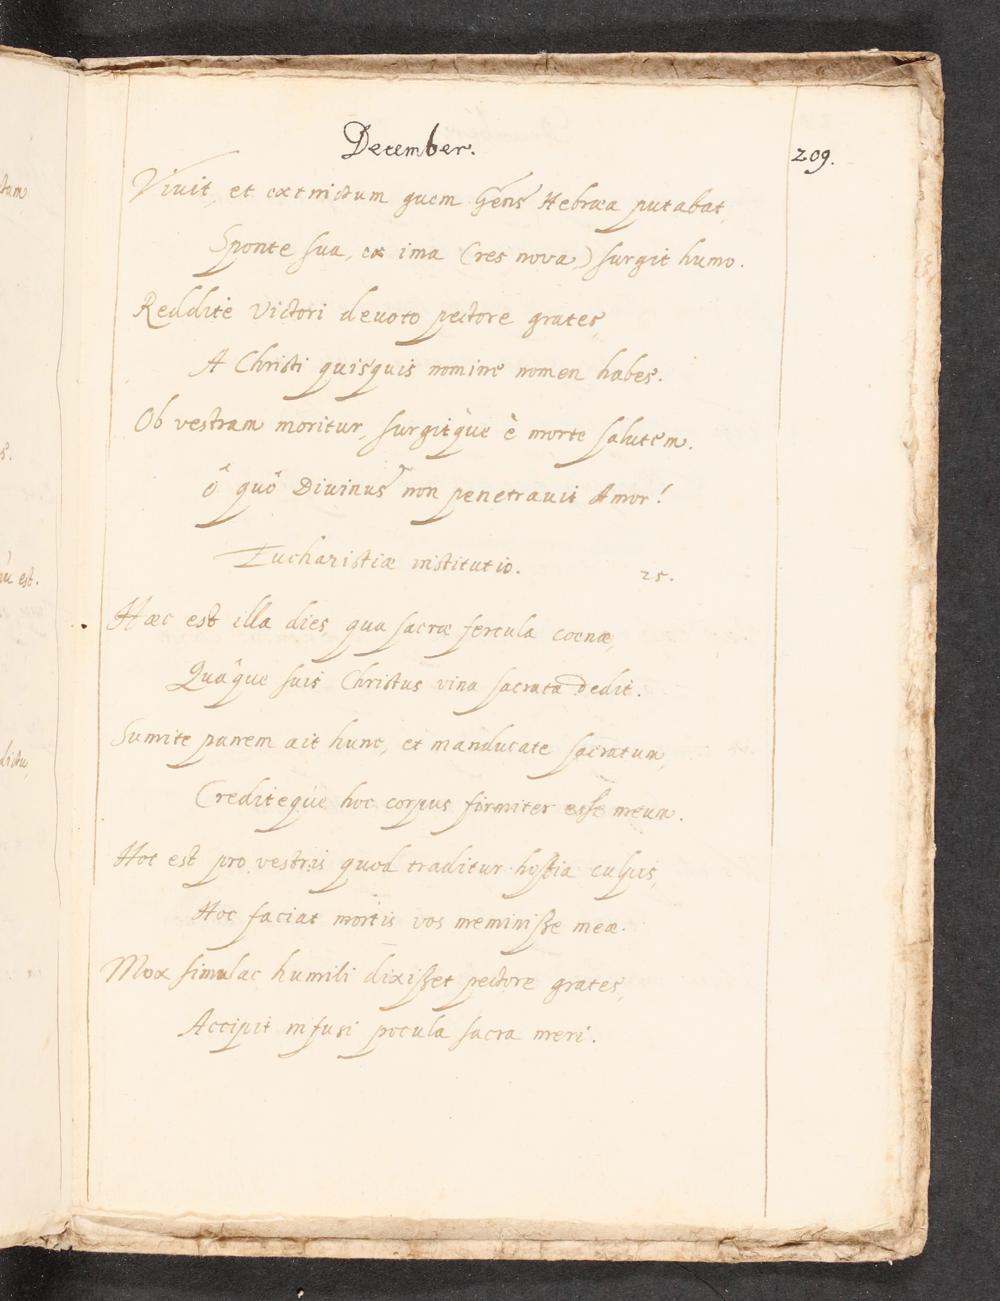 December.
209.
Viuit, et extinctum quem Gens Hebræa putabat,
Sponte sua, ex ima (res nova) surgit humo.
Reddite Victori deuoto pectore grates,
A Christi quisquis nomine nomen habes.
Ob vestram moritur, surgitq̀ue è morte salutem.
ô quô Diuinus non penetrauit Amor!
Eucharistiæ institutio. 25.
Hæc est illa dies, qua sacræ fercula coenæ,
Quâque suis Christus vina sacrata dedit.
Sumite panem ait hunc, et manducate sacratum,
Crediteqùe hoc corpus firmiter esse meum.
Hoc est pro vestris quod traditur hostia culpis,
Hoc faciat mortis vos meminisse meæ.
Mox simulac humili dixisset pectore grates,
Accipit infusi pocula sacra meri.
tam
s.
est.